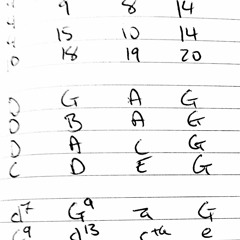 9 8 14
15 10 14
18 19 20
G A G
B A G
A C G
C D E G
d7 G9 a G
d13 e